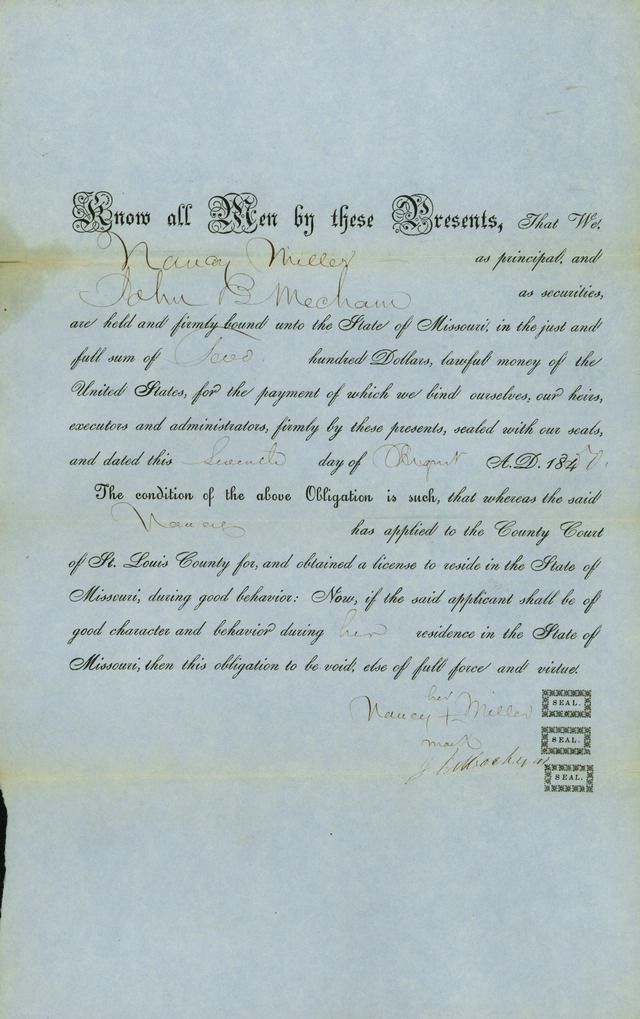 Know all Men by these Presents, That We,
Nancy Miller as principal, and
John B Mecham as securities,
are held and firmly bound unto the State of Missouri, in the just and
full sum of hundred Dollars, lawful money of the
United States, for the payment of which we bind ourselves, our heirs,
executors and administrators, firmly by these presents, sealed with our seals,
and dated this Seventh day of August A.D. 184
The condition of the above Obligation is such, that whereas the said
Nancy has applied to the County Court
of St. Louis County for, and obtained a license to reside in the State of
Missouri, during good behavior: Now, if the said applicant shall be of
good character and behavior during her residence in the State of
Missouri, then this obligation to be void, else of full force and virtue.
her
Nancy + Miller SEAL.
mark SEAL.
SEAL.